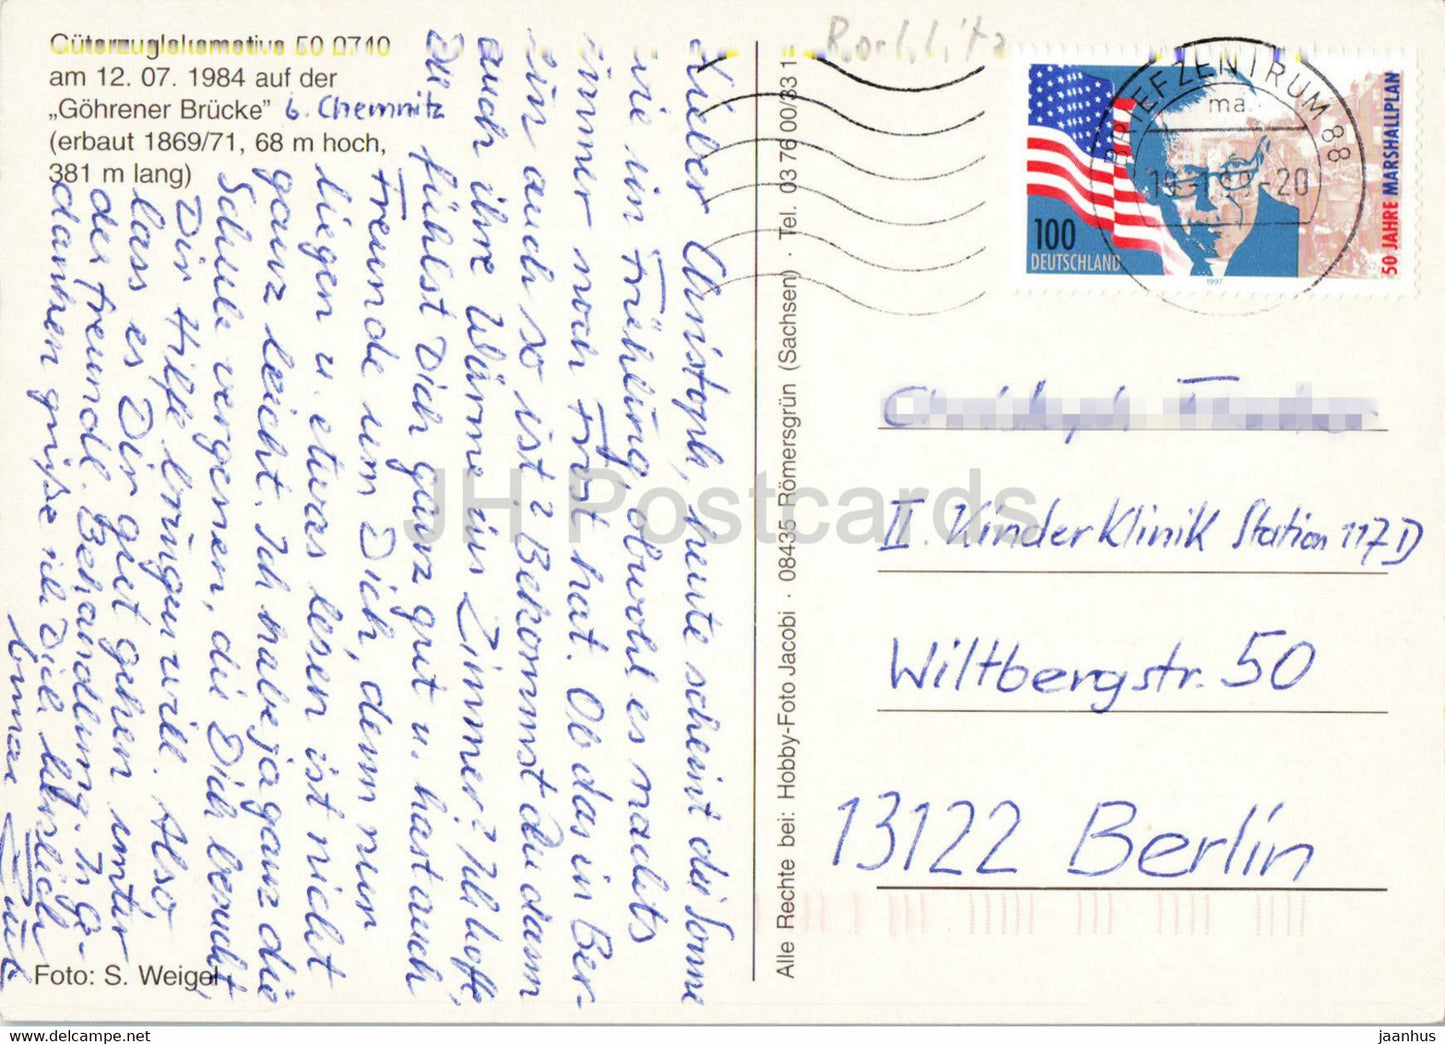 Güterzuglokomotive 50 0740
am 12. 07. 1984 auf der
„Göhrener Brücke" b. Chemnitz
(erbaut 1869/71, 68 m hoch,
381 m lang)
Lieber Christoph, heute scheint die Sonne
wie im Frühling, obwohl es nachts
immer noch Frost hat. Ob das in Ber-
lin auch so ist? Bekommst du dann
auch ihre Wärme ins Zimmer? Ich hoffe,
Du fühlst Dich ganz gut u. hast auch
Freunde um Dich, denn nur
liegen u. etwas lesen ist nicht
ganz leicht. Ich habe ja ganz die
Schule vergessen, die Dich besucht,
Dir Hilfe bringen will. Also
lass es Dir gut gehen unter
der freundl. Behandlung. In Ge-
danken grüße ich Dich herzlich
Foto: S. Weigel
Alle Rechte bei: Hobby-Foto Jacobi · 08435 Römersgrün (Sachsen) · Tel. 03 76 00/33 1
Rochlitz
BRIEFZENTRUM 88
ma
20
100
DEUTSCHLAND
1997
50 JAHRE MARSHALLPLAN
II. Kinderklinik Station 117D
Wiltbergstr. 50
13122 Berlin
JH Postcards
www.hippostcard.com
jaanhus